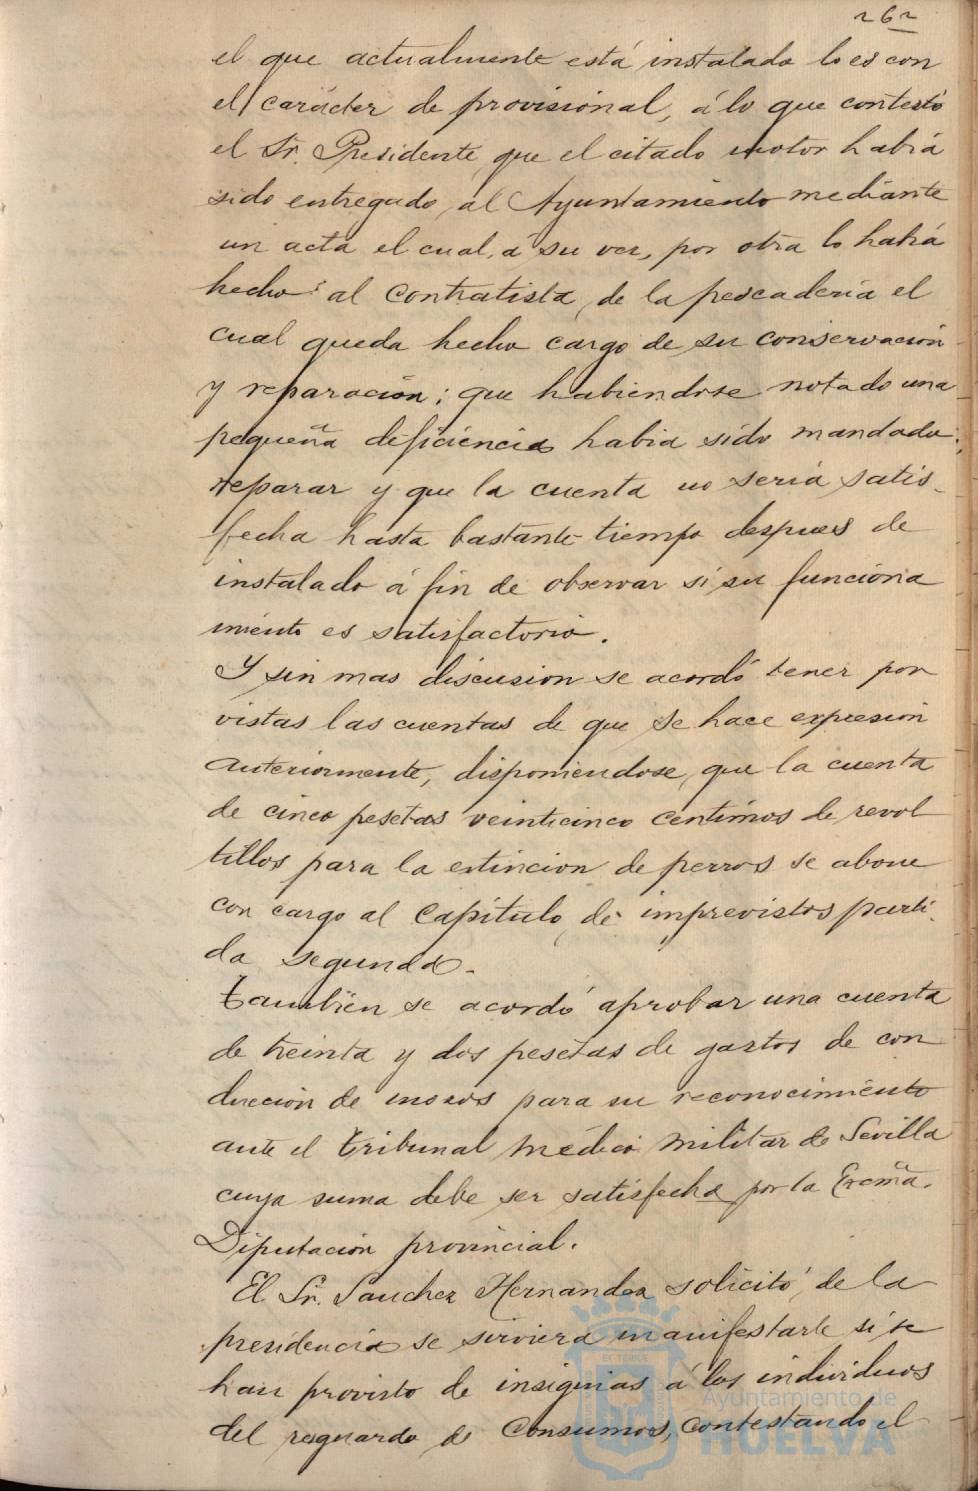 ~ 6 ~
el que actualmente está instalado lo es con
el carácter de provisional, á lo que contestó
el Sr. Presidente que el citado motor había
sido entregado al Ayuntamiento mediante
un acta el cual, á su vez, por otra lo había
hecho al contratista de la pescadería el
cual queda hecho cargo de su conservación
y reparación; que habiendose notado una
pequeña deficiencia habia sido mandado
reparar y que la cuenta no sería satis-
fecha hasta bastante tiempo despues de
instalado á fin de observar si su funciona
miento es satisfactorio.
Y sin mas discusion se acordó tener por
vistas las cuentas de que se hace expresion
anteriormente, disponiendose que la cuenta
de cinco pesetas veinticinco centimos de revol
tillos para la estincion de perros se abone
con cargo al Capitulo de imprevistos parti-
da segunda.
También se acordó aprobar una cuenta
de treinta y dos pesetas de gastos de con
duccion de mozos para su reconocimiento
ante el tribunal médico militar de Sevilla
cuya suma debe ser satisfecha por la Excmã.
Diputación provincial.
El Sr. Sanchez Hernandez solicitó de la
presidencia se serviera manifestarle si se
han provisto de insignias á los individuos
del resguardo de Consumos, contestando el
Ayuntamiento de
HUELVA